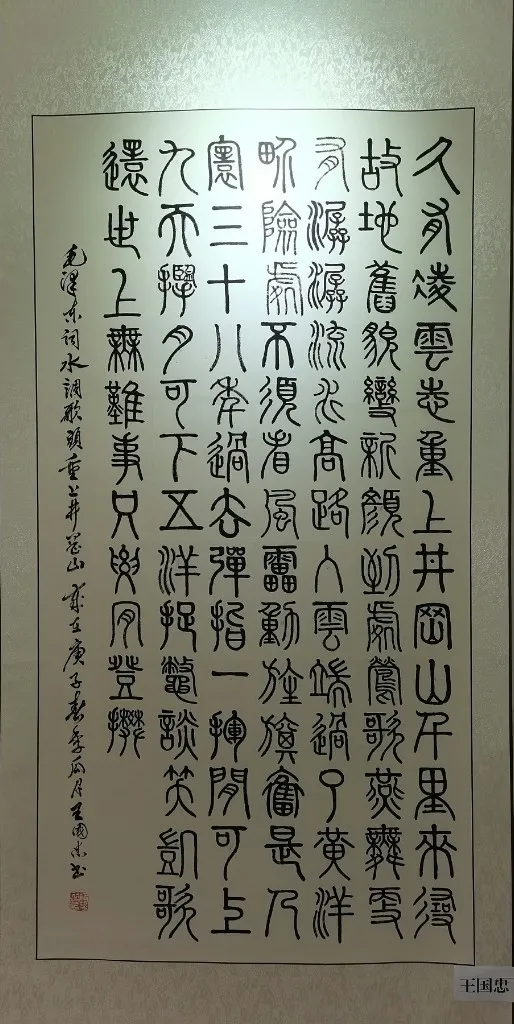 久有凌雲志重上井岡山千里來尋
故地舊貌變新顏到處鶯歌燕舞更
有潺潺流水高路入雲端過了黃洋
界險處不須看風雷動旌旗奮是人
寰三十八年過去彈指一揮間可上
九天攬月可下五洋捉鱉談笑凱歌
還世上無難事只要肯登攀
毛澤東詞水調歌頭重上井岡山 歲在庚子季瓜月王國忠書
王国忠